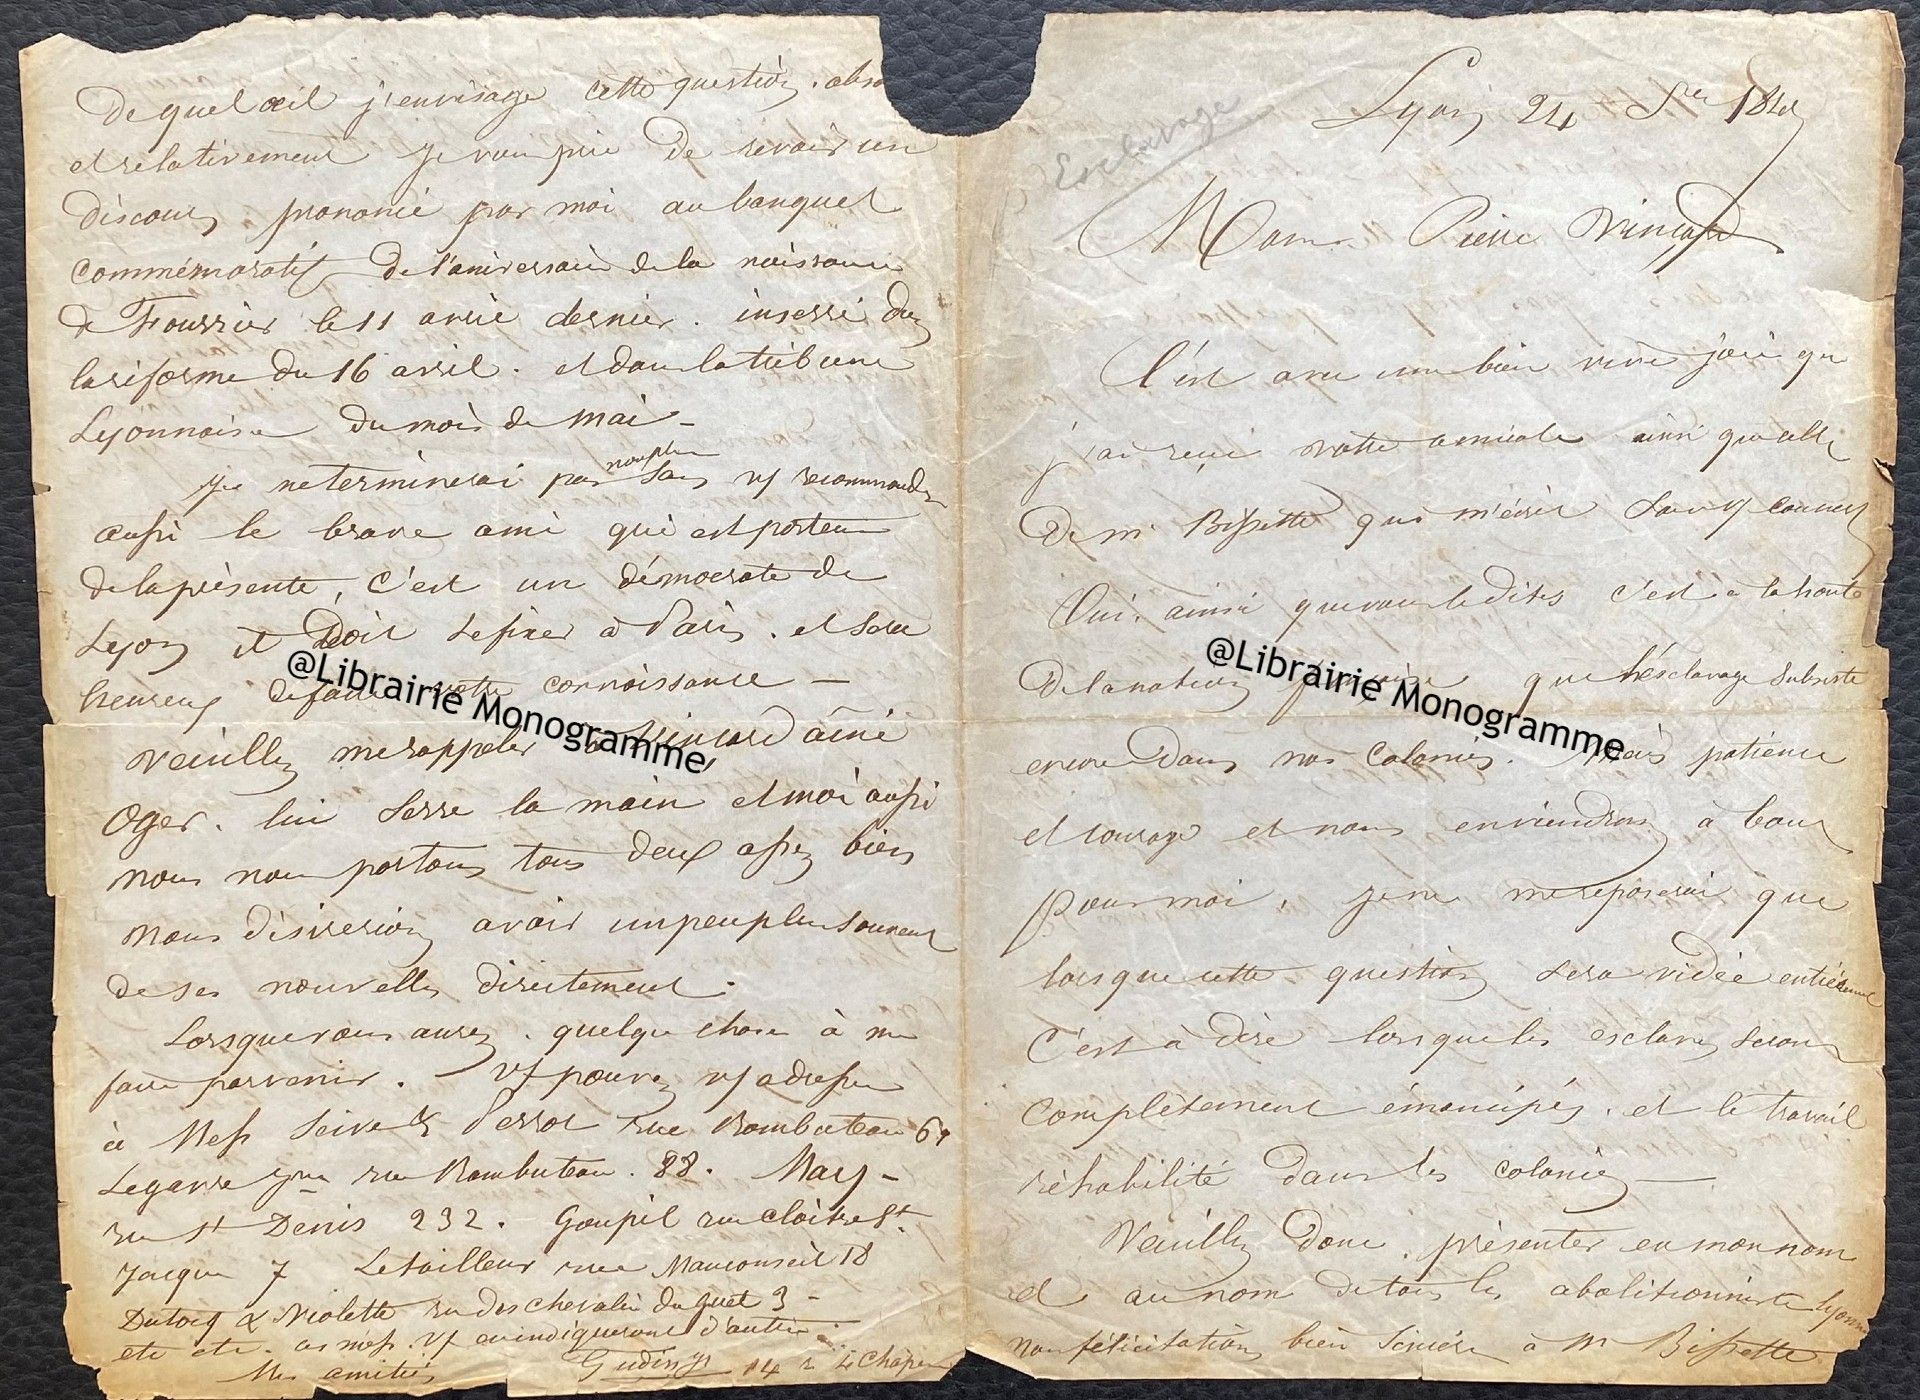 Lyon 24 8bre 184
Esclavage
Pierre Vinçard
C'est avec une bien vive joie que
j'ai reçu votre amicale ainsi que celle
de mr Bissette qui m'écrit
Oui. ainsi que vous le dites c'est a la honte
de la nation que l'ésclavage subsiste
encore dans nos colonies. Mais patience
et courage et nous en viendrons à bout
pour moi, je ne me reposerai que
lorsque cette question sera vidée entièrement
C'est à dire lorsque les esclaves seront
complètement émancipés. et le travail
réhabilité dans les colonies —
Veuillez donc. présenter en mon nom
et au nom de tous les abolitionniste lyonn
nos félicitations bien sincère à Mr Bissette
De quel œil j'envisage cette question. abso
et relativement je vous prie de revoir un
discours prononcé par moi au banquet
commémoratif de l'aniversaire de la naissance
de Fourrier le 11 avril dernier. inserré dans
la réforme du 16 avril. et dans la tribune
Lyonnaise du mois de mai —
Je ne terminerai pas non plus sans vs recommander
aussi le brave ami qui est porteur
de la présente, c'est un démocrate de
Lyon il doit se fixer à Paris. et sera
heureux de faire votre connaissance —
Veuillez me rappeler à Vinçard ainé
Oger. lui serre la main et moi aussi
nous nous portons tous deux assez bien
nous désirerions avoir un peu plus souvent
de ses nouvelles directement.
Lorsque vous aurez. quelque chose à me
faire parvenir. vs pouvez vs adresser
à Mess Seive & Perrot rue Rambuteau 61
rue Rambuteau. 88. May —
rue St Denis 232. Goupil rue cloitre St
Jacque 7 Letailleur rue Mauconseil 18
Dutocq & Violette rue des chevalier du guet 3 —
etc etc. ces mess. vs en indiqueront d'autres
Mes amitiés
@Librairie Monogramme
@Librairie Monogramme